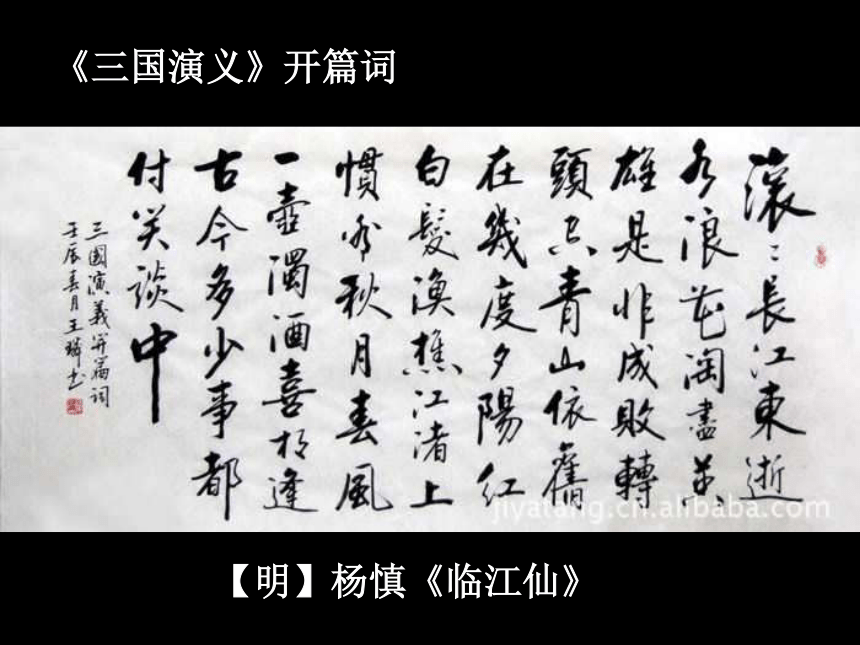 《三国演义》开篇词
滾〻長江東逝
水浪花淘盡英
雄是非成敗轉
頭空青山依舊
在幾度夕陽紅
白髮漁樵江渚上
慣看秋月春風
一壺濁酒喜相逢
古今多少事都
付笑談中
三國演義开篇詞
壬辰春月王书
jiyatang.cn.alibaba.com
【明】杨慎《临江仙》